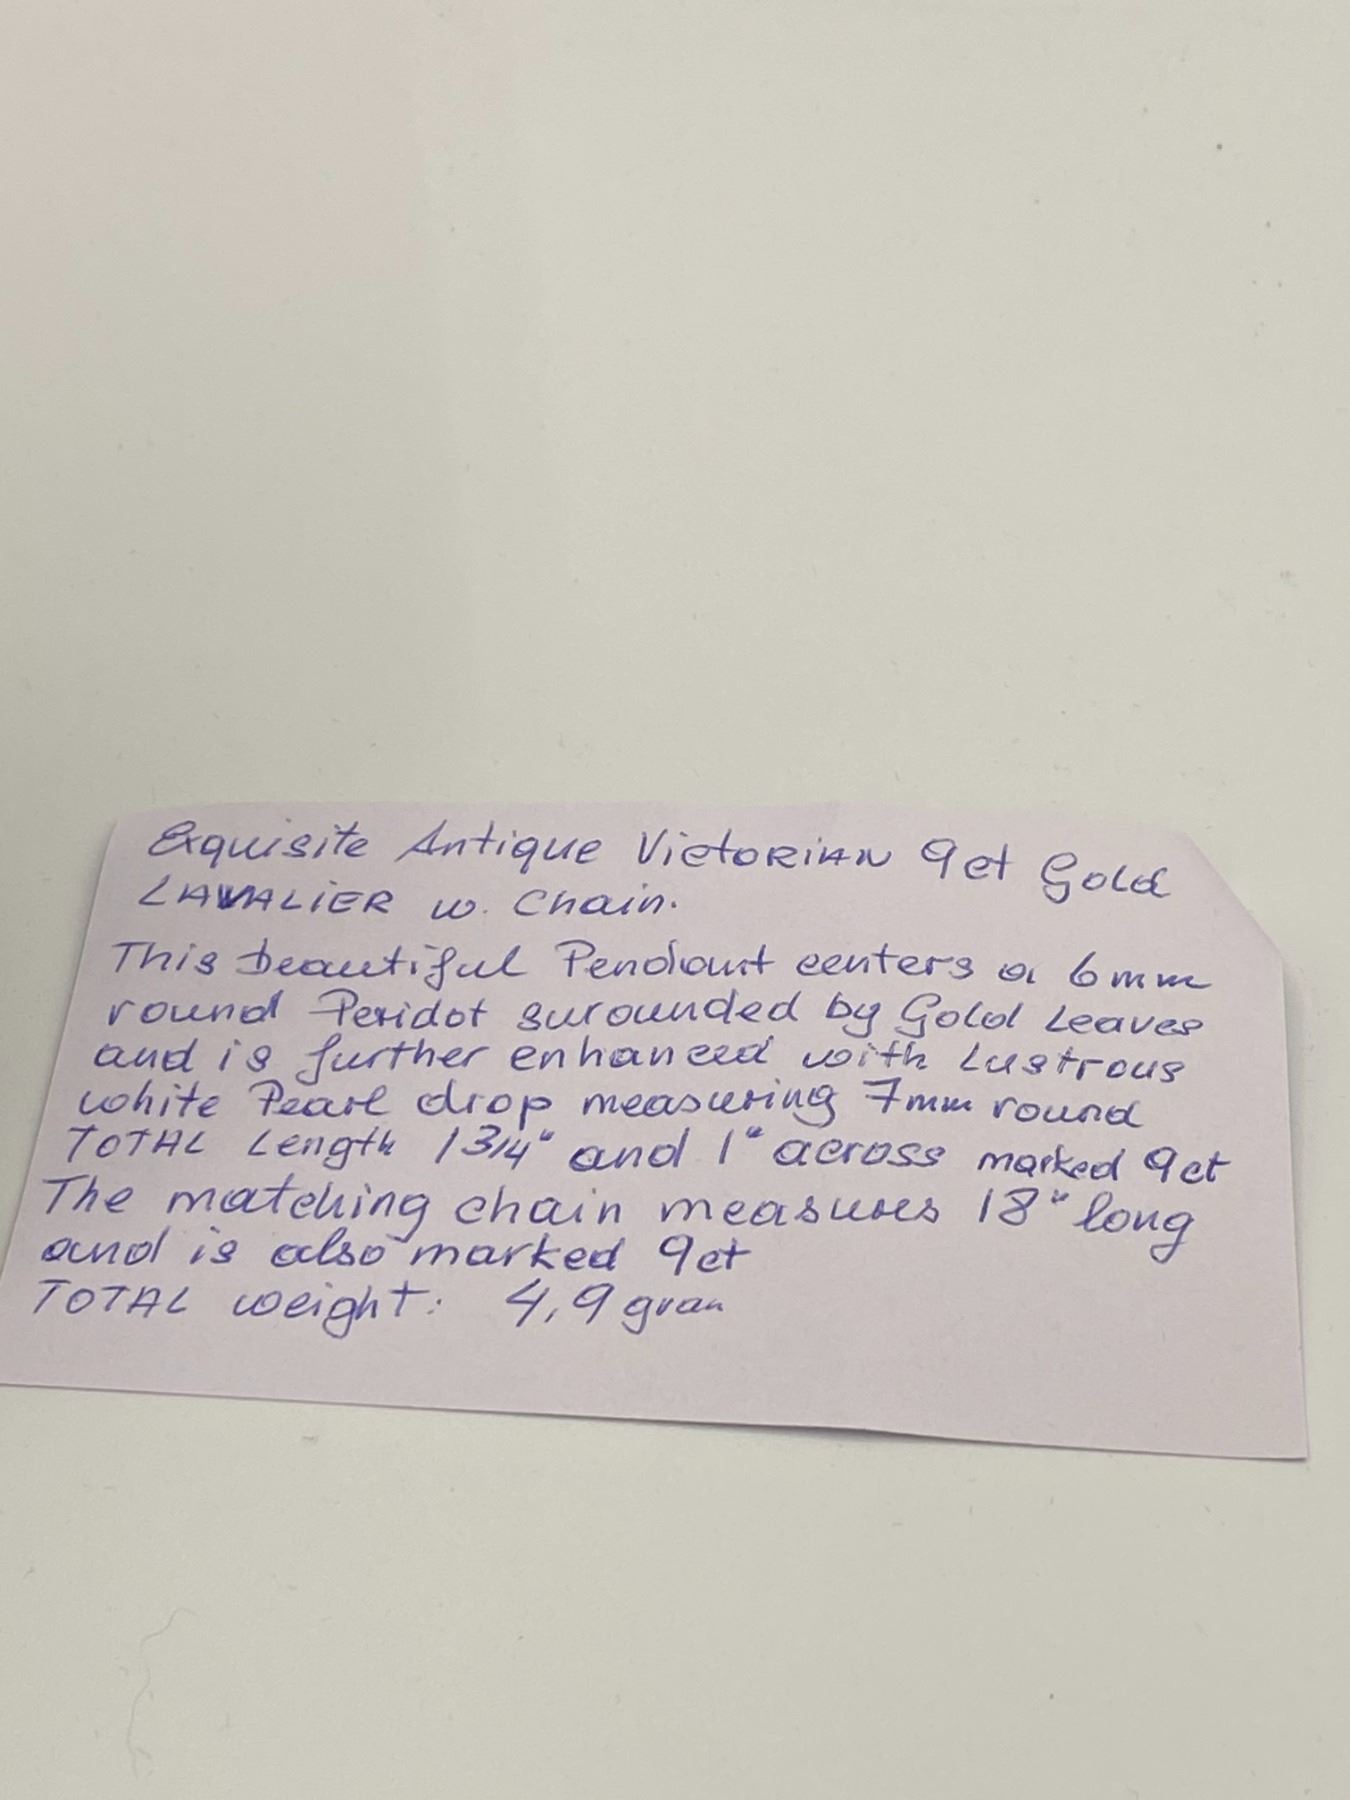 Exquisite Antique VictoRiAN 9ct Gold
LAVALiER w. Chain.
This beautiful Pendant centers a 6mm
round Peridot surounded by Gold Leaves
and is further enhanced with Lustrous
white Pearl drop measuring 7mm round
TOTAL Length 1 3/4" and 1" across marked 9ct
The matching chain measures 18" long
and is also marked 9ct
TOTAL weight: 4,9 gram